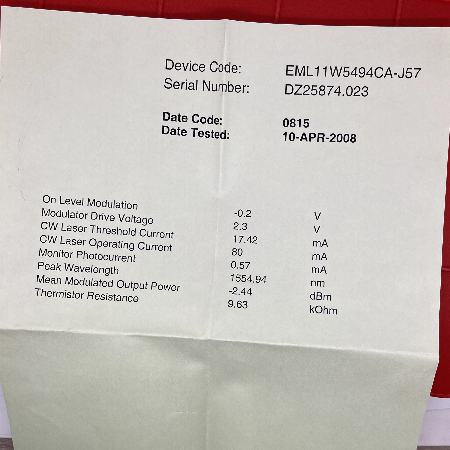 Device Code: EML11W5494CA-J57
Serial Number: DZ25874.023
Date Code: 0815
Date Tested: 10-APR-2008
On Level Modulation -0.2 V
Modulator Drive Voltage 2.3 V
CW Laser Threshold Current 17.42 mA
CW Laser Operating Current 80 mA
Monitor Photocurrent 0.57 mA
Peak Wavelength 1554.94 nm
Mean Modulated Output Power -2.44 dBm
Thermistor Resistance 9.63 kOhm